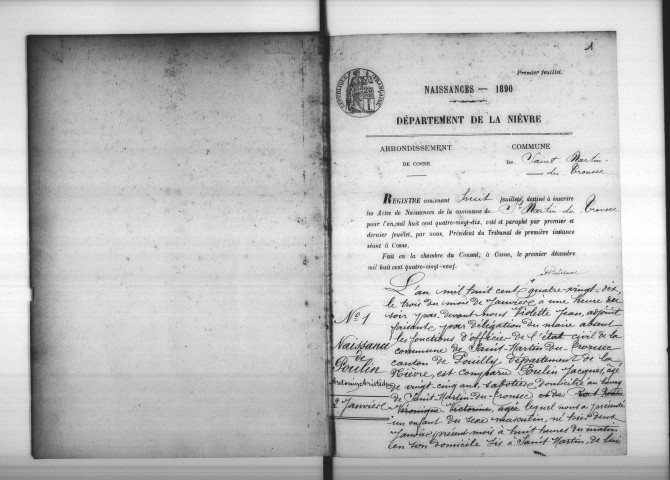 1
Premier feuillet.
NAISSANCES — 1890
RÉPUBLIQUE FRANÇAISE
DÉPARTEMENT DE LA NIÈVRE
ARRONDISSEMENT
DE COSNE
COMMUNE
DE Saint Martin-
du Tronsec
REGISTRE contenant huit feuillets, destiné à inscrire
les Actes de Naissances de la commune de St Martin du Tronsec
pour l'an mil huit cent quatre-vingt-dix, coté et paraphé par premier et
dernier feuillet, par nous, Président du Tribunal de première instance
séant à Cosne.
Fait en la chambre du Conseil, à Cosne, le premier décembre
mil huit cent quatre-vingt-neuf.
No 1
Naissance
de
Poulin
Antonin Aristide
2 Janvier
L'an mil huit cent quatre-vingt-dix,
le trois du mois de Janvier à une heure du
soir par devant nous Violette Jean, adjoint
faisant par délégation du maire absent
les fonctions d'officier de l'état civil de la
commune de Saint-Martin-du-Tronsec
canton de Pouilly département de la
Nièvre, est comparu Poulin Jacques, âgé
de vingt cinq ans, sabotier domicilié au bourg
de Saint-Martin-du-Tronsec et de
Véronique Victorine, âgée lequel nous a présenté
un enfant du sexe masculin, né hier deux
Janvier présent mois à huit heures du matin
en son domicile sis à Saint Martin, de lui